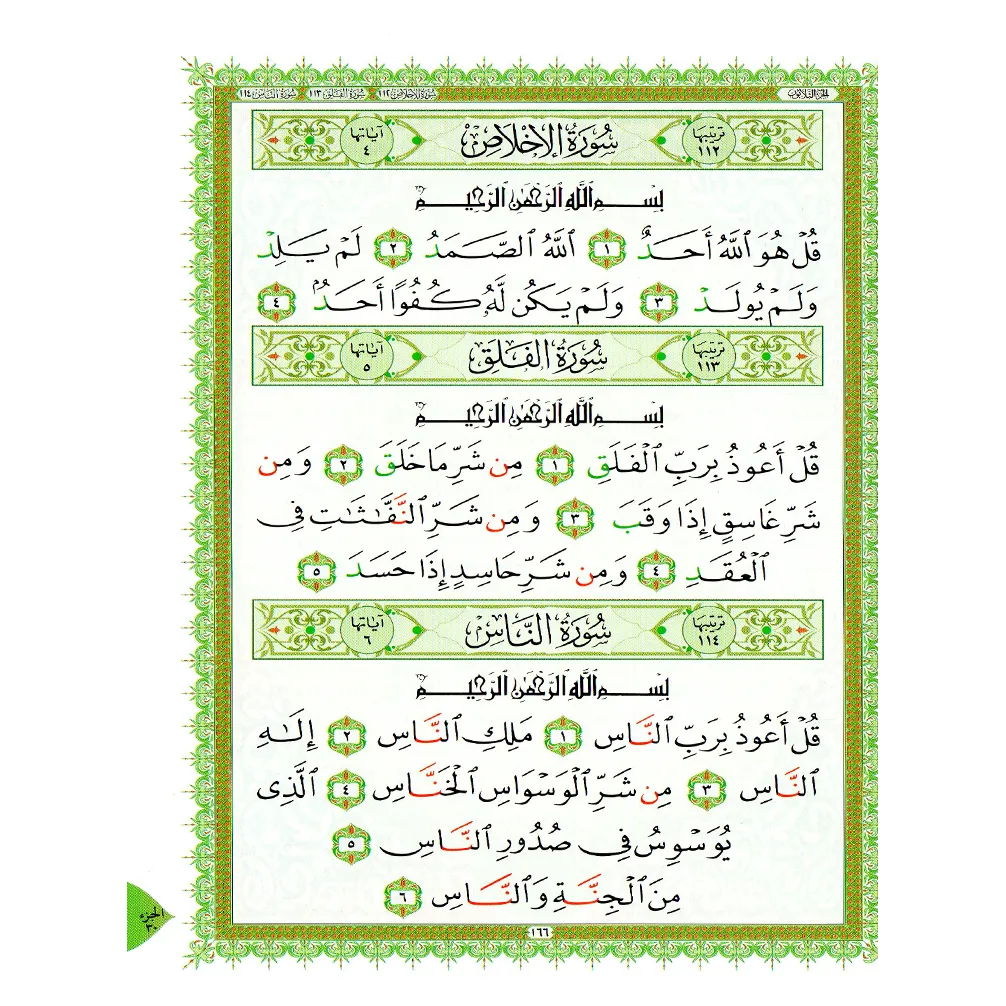 الجزء الثلاثون سورة الإخلاص ١١٢ سورة الفلق ١١٣ سورة الناس ١١٤
ترتيبها ١١٢ سُورَةُ الإِخْلَاصِ آياتها ٤
بِسْمِ ٱللَّهِ ٱلرَّحْمَٰنِ ٱلرَّحِيمِ
قُلْ هُوَ ٱللَّهُ أَحَدٌ ١ ٱللَّهُ ٱلصَّمَدُ ٢ لَمْ يَلِدْ
وَلَمْ يُولَدْ ٣ وَلَمْ يَكُن لَّهُۥ كُفُوًا أَحَدٌۢ ٤
ترتيبها ١١٣ سُورَةُ الفَلَقِ آياتها ٥
بِسْمِ ٱللَّهِ ٱلرَّحْمَٰنِ ٱلرَّحِيمِ
قُلْ أَعُوذُ بِرَبِّ ٱلْفَلَقِ ١ مِن شَرِّ مَا خَلَقَ ٢ وَمِن
شَرِّ غَاسِقٍ إِذَا وَقَبَ ٣ وَمِن شَرِّ ٱلنَّفَّٰثَٰتِ فِى
ٱلْعُقَدِ ٤ وَمِن شَرِّ حَاسِدٍ إِذَا حَسَدَ ٥
ترتيبها ١١٤ سُورَةُ النَّاسِ آياتها ٦
بِسْمِ ٱللَّهِ ٱلرَّحْمَٰنِ ٱلرَّحِيمِ
قُلْ أَعُوذُ بِرَبِّ ٱلنَّاسِ ١ مَلِكِ ٱلنَّاسِ ٢ إِلَٰهِ
ٱلنَّاسِ ٣ مِن شَرِّ ٱلْوَسْوَاسِ ٱلْخَنَّاسِ ٤ ٱلَّذِى
يُوَسْوِسُ فِى صُدُورِ ٱلنَّاسِ ٥
مِنَ ٱلْجِنَّةِ وَٱلنَّاسِ ٦
الجزء
٣٠
١٦٦